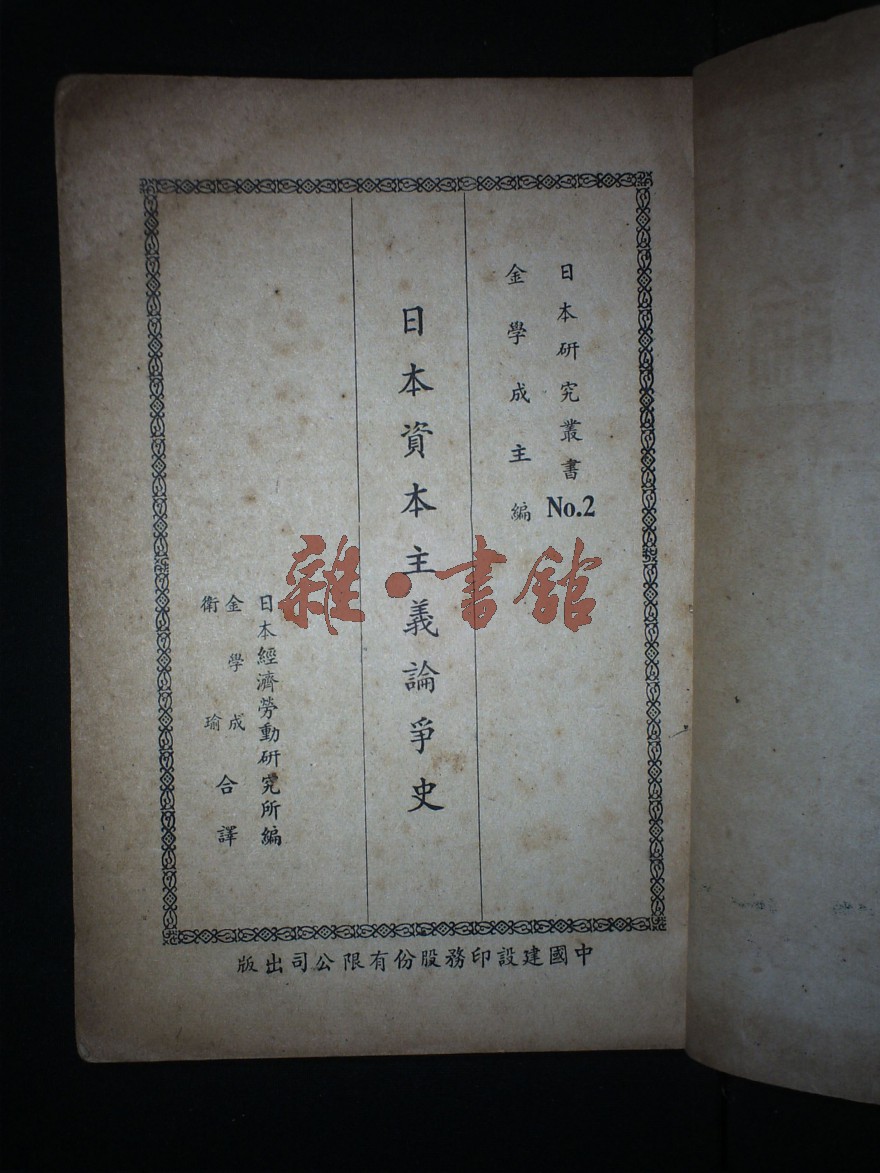 日本研究叢書 No.2
金學成主編
日本資本主義論爭史
日本經濟勞動研究所編
金學成
衛瑜
合譯
中國建設印務股份有限公司出版
雜·書館